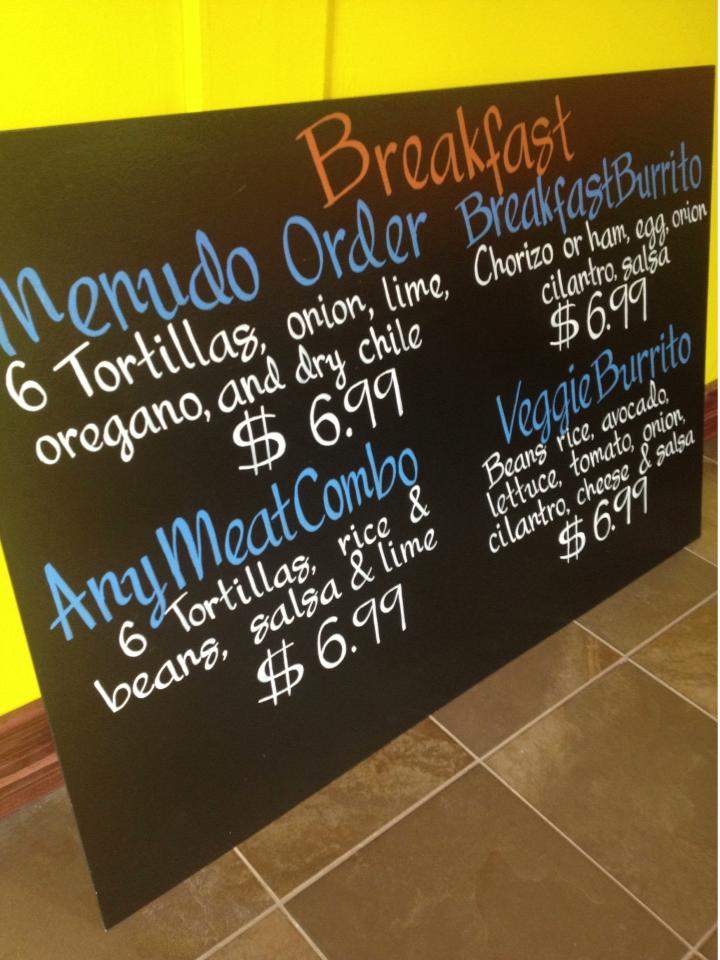 Breakfast
Menudo Order
6 Tortillas, onion, lime,
oregano, and dry chile
$ 6.99
Breakfast Burrito
Chorizo or ham, egg, onion
cilantro, salsa
$ 6.99
Any Meat Combo
6 Tortillas, rice &
beans, salsa & lime
$ 6.99
Veggie Burrito
Beans rice, avocado,
lettuce, tomato, onion,
cilantro, cheese & salsa
$ 6.99